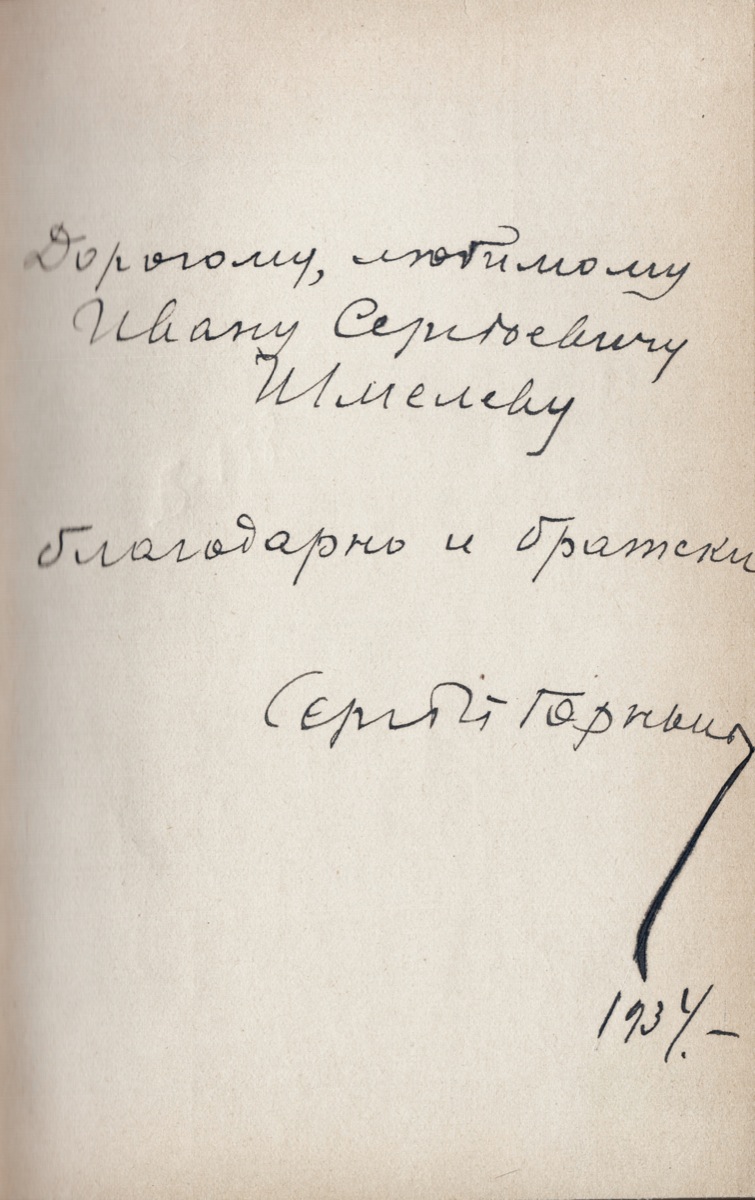 Дорогому, любимому
Ивану Сергѣевичу
Шмелеву
благодарно и братски
Сергѣй Горный
1934.–